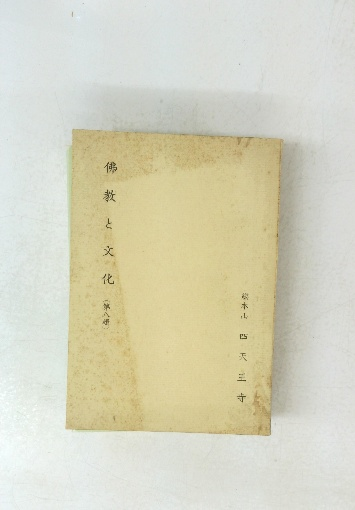 佛教と文化（第八類）
総本山 四天王寺